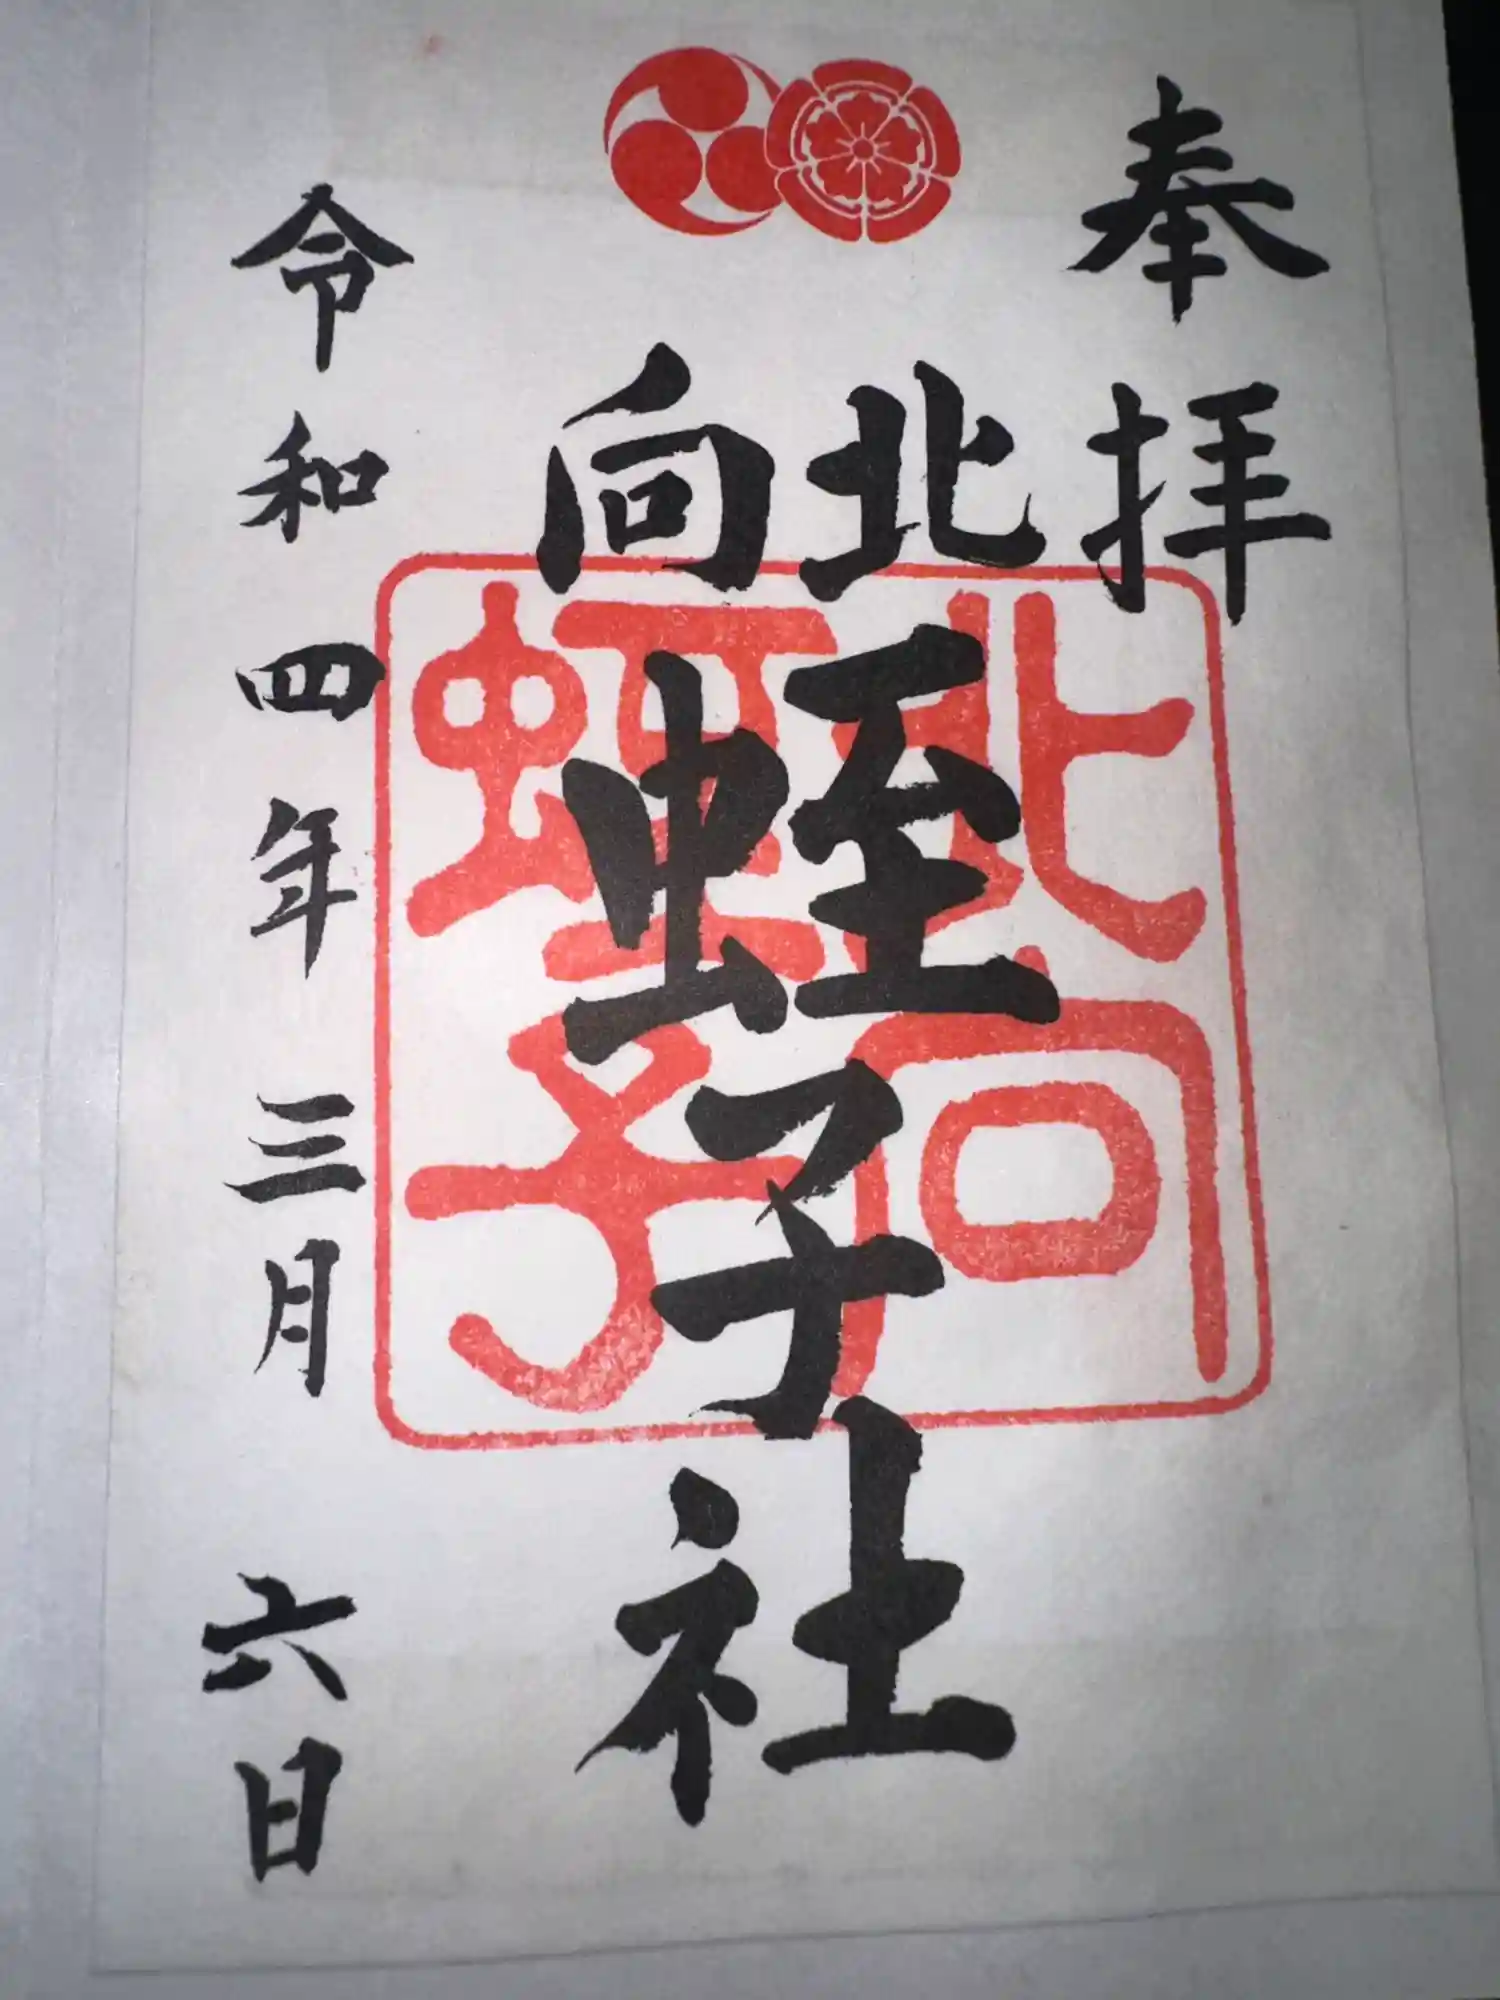 奉拝
北向
蛭子社
北向
蛭子
令和四年三月六日